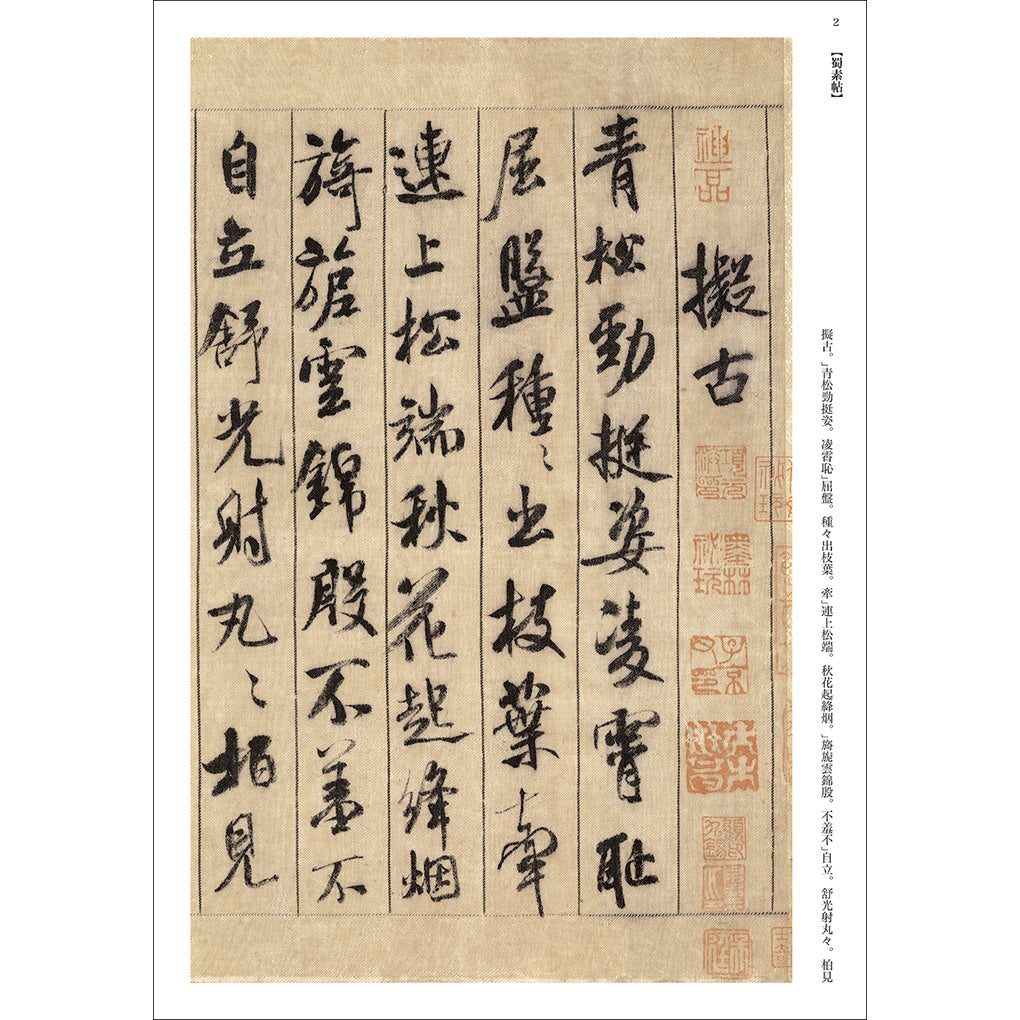 2
【蜀素帖】
擬古。」青松勁挺姿。凌霄恥」屈盤。種々出枝葉。牽」連上松端。秋花起絳烟。」旖旎雲錦殷。不羞不」自立。舒光射丸々。柏見
神品
擬古
青松勁挺姿凌霄恥
屈盤種〻出枝葉牽
連上松端秋花起絳烟
旖旎雲錦殷不羞不
自立舒光射丸〻柏見